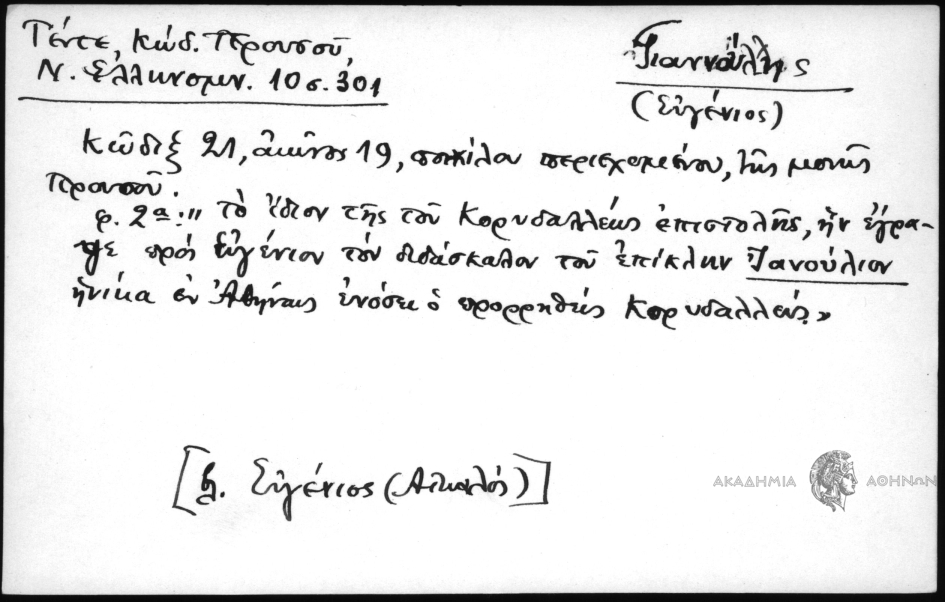 Γέντε, κώδ. Προυσού
Ν. Ελληνομν. 10 σ. 301
Γιαννούλης
(Εὐγένιος)
Κῶδιξ 21, αἰῶνος 19, ποικίλου περιεχομένου, τῆς μονῆς
Προυσοῦ.
φ. 2α: "τὸ ἴδιον τῆς τοῦ Κορυδαλλέως ἐπιστολῆς, ἣν ἔγρα-
ψε πρὸς Εὐγένιον τὸν διδάσκαλον τοῦ ἐπίκλην Γιανούλιον
ἡνίκα ἐν Ἀθήναις ἐνόσει ὁ προρρηθείς Κορυδαλλεύς.»
[βλ. Εὐγένιος (Αἰτωλός)]
ΑΚΑΔΗΜΙΑ ΑΘΗΝΩΝ